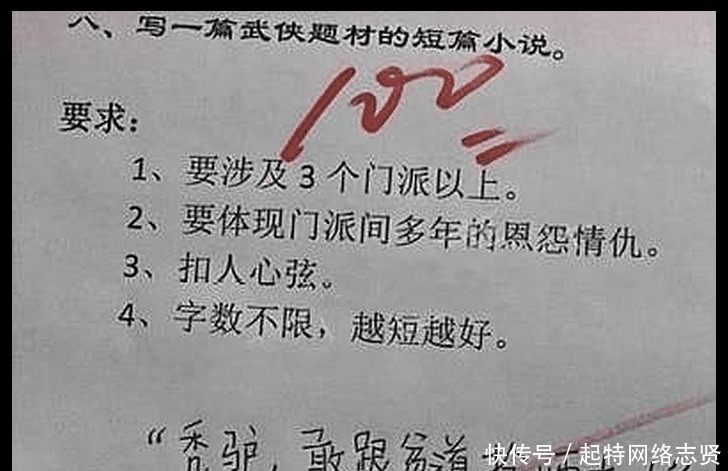 八、写一篇武侠题材的短篇小说。
100
要求：
1、要涉及3个门派以上。
2、要体现门派间多年的恩怨情仇。
3、扣人心弦。
4、字数不限，越短越好。
“秃驴，敢跟贫道
快传号／起特网络志贤